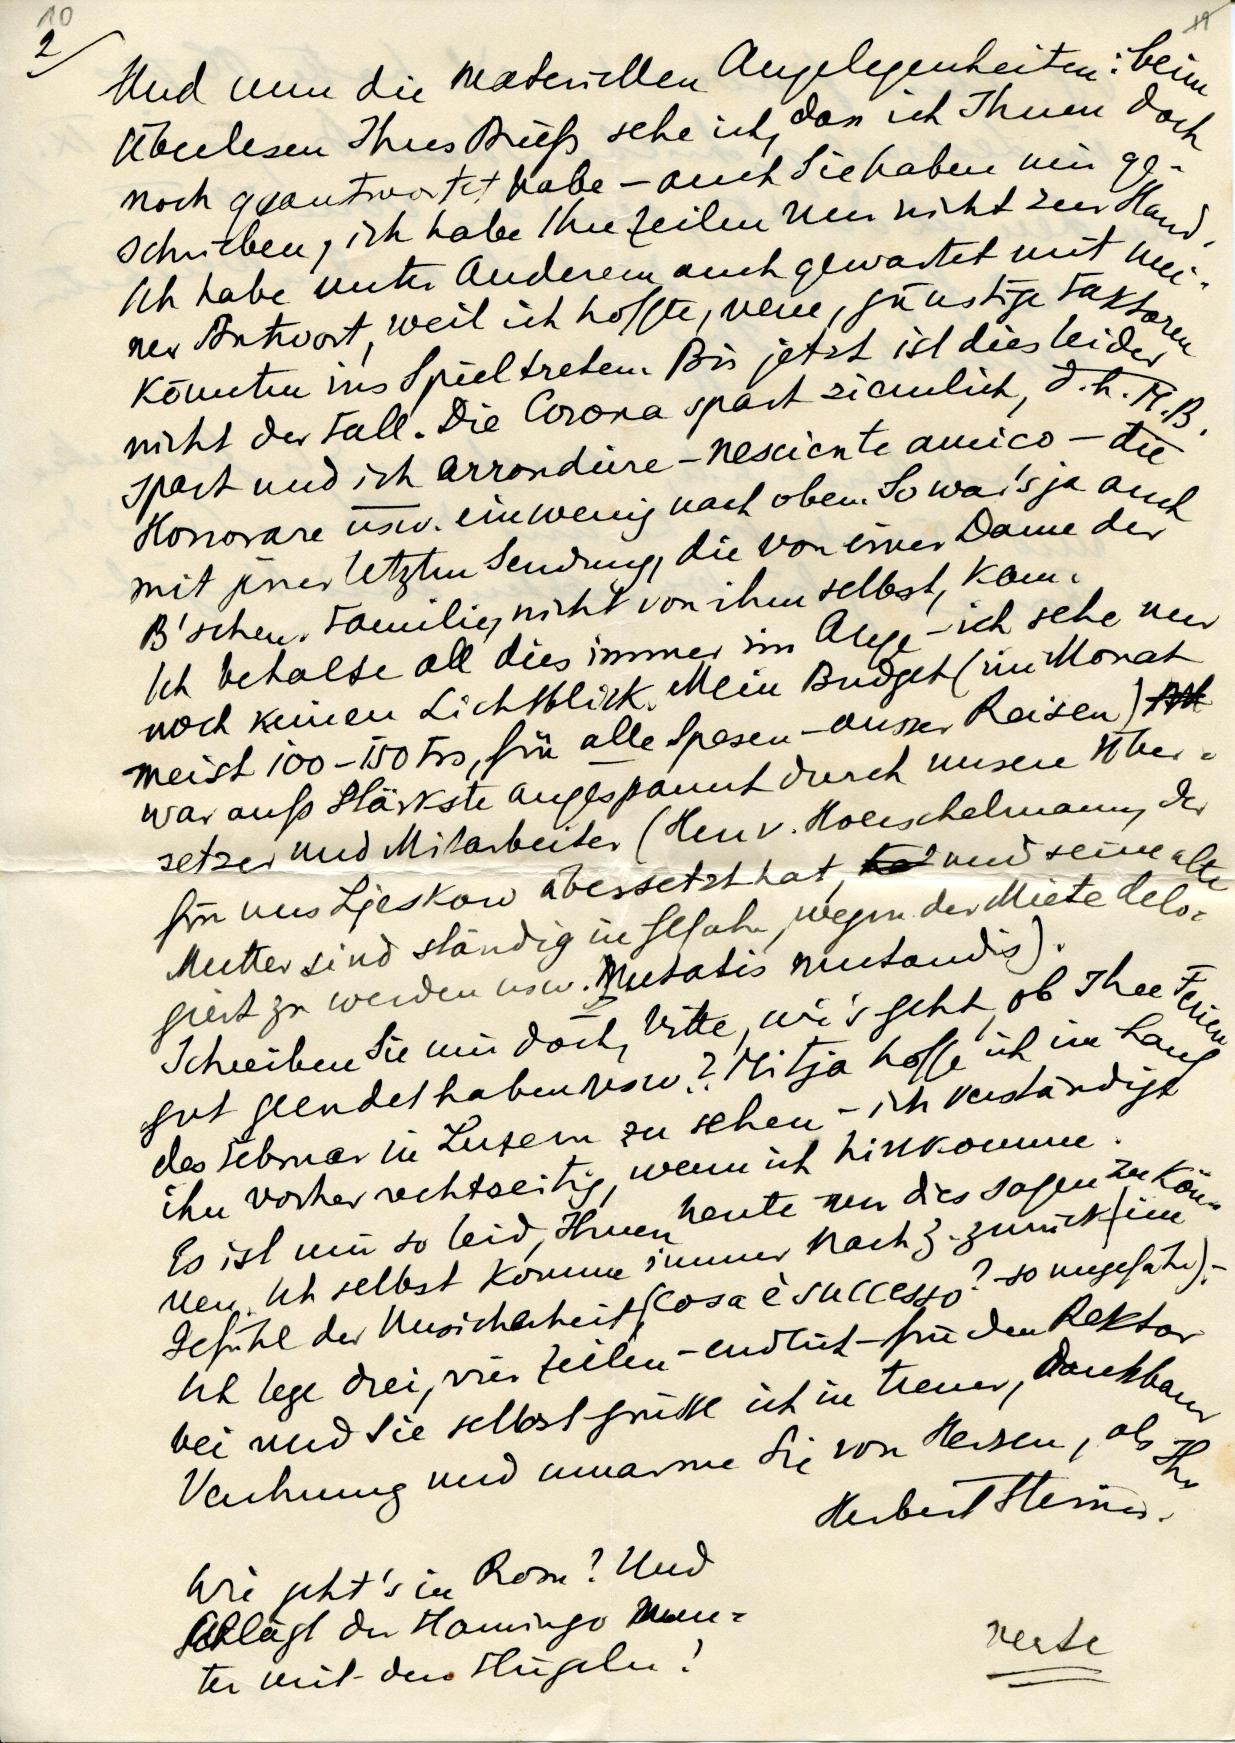 10
2
Und nun die materiellen Angelegenheiten: beim
Überlesen Ihres Briefs sehe ich, dass ich Ihnen doch
noch geantwortet habe – auch Sie haben mir ge-
schrieben, ich habe Ihre Zeilen nur nicht zur Hand.
Ich habe unter Anderem auch gewartet mit mei-
ner Antwort, weil ich hoffte, neue, günstige Faktoren
könnten ins Spiel treten. Bis jetzt ist dies leider
nicht der Fall. Die Corona spart ziemlich, d.h. M.B.
spart und ich arrondiere – nesciente amico – die
Honorare usw. ein wenig nach oben. So war's ja auch
mit jener letzten Sendung, die von einer Dame der
B'schen. Familie, nicht von ihm selbst, kam.
Ich behalte all dies immer im Auge – ich sehe nur
noch keinen Lichtblick. Mein Budget (im Monat
meist 100 – 150 Frs, für alle Spesen – ausser Reisen)
war aufs Stärkste angespannt durch unsere Über-
setzer und Mitarbeiter (Herr v. Hoerschelmann, der
für uns Ljeskow übersetzt hat, und seine alte
Mutter sind ständig in Gefahr, wegen der Miete delo-
giert zu werden usw. Mutatis mutandis).
Schreiben Sie mir doch, bitte, wie's geht, ob Ihre Ferien
gut geendet haben usw? Mitja hoffe ich im Lauf
des Februar in Luzern zu sehen – ich verständige
ihn vorher rechtzeitig, wenn ich hinkomme.
Es ist mir so leid, Ihnen heute nur dies sagen zu kön-
nen. Ich selbst komme immer nach Z. zurück (im
Gefühl der Unsicherheit, (cosa è successo? – so ungefähr).–
Ich lege drei, vier Zeilen – endlich – für den Rektor
bei und Sie selbst grüsse ich in treuer, dankbarer
Verehrung und umarme Sie von Herzen, als Ihr
Herbert Steiner.
Wie geht's in Rom? Und
schlägt der Flamingo mun-
ter mit den Flügeln?
verte